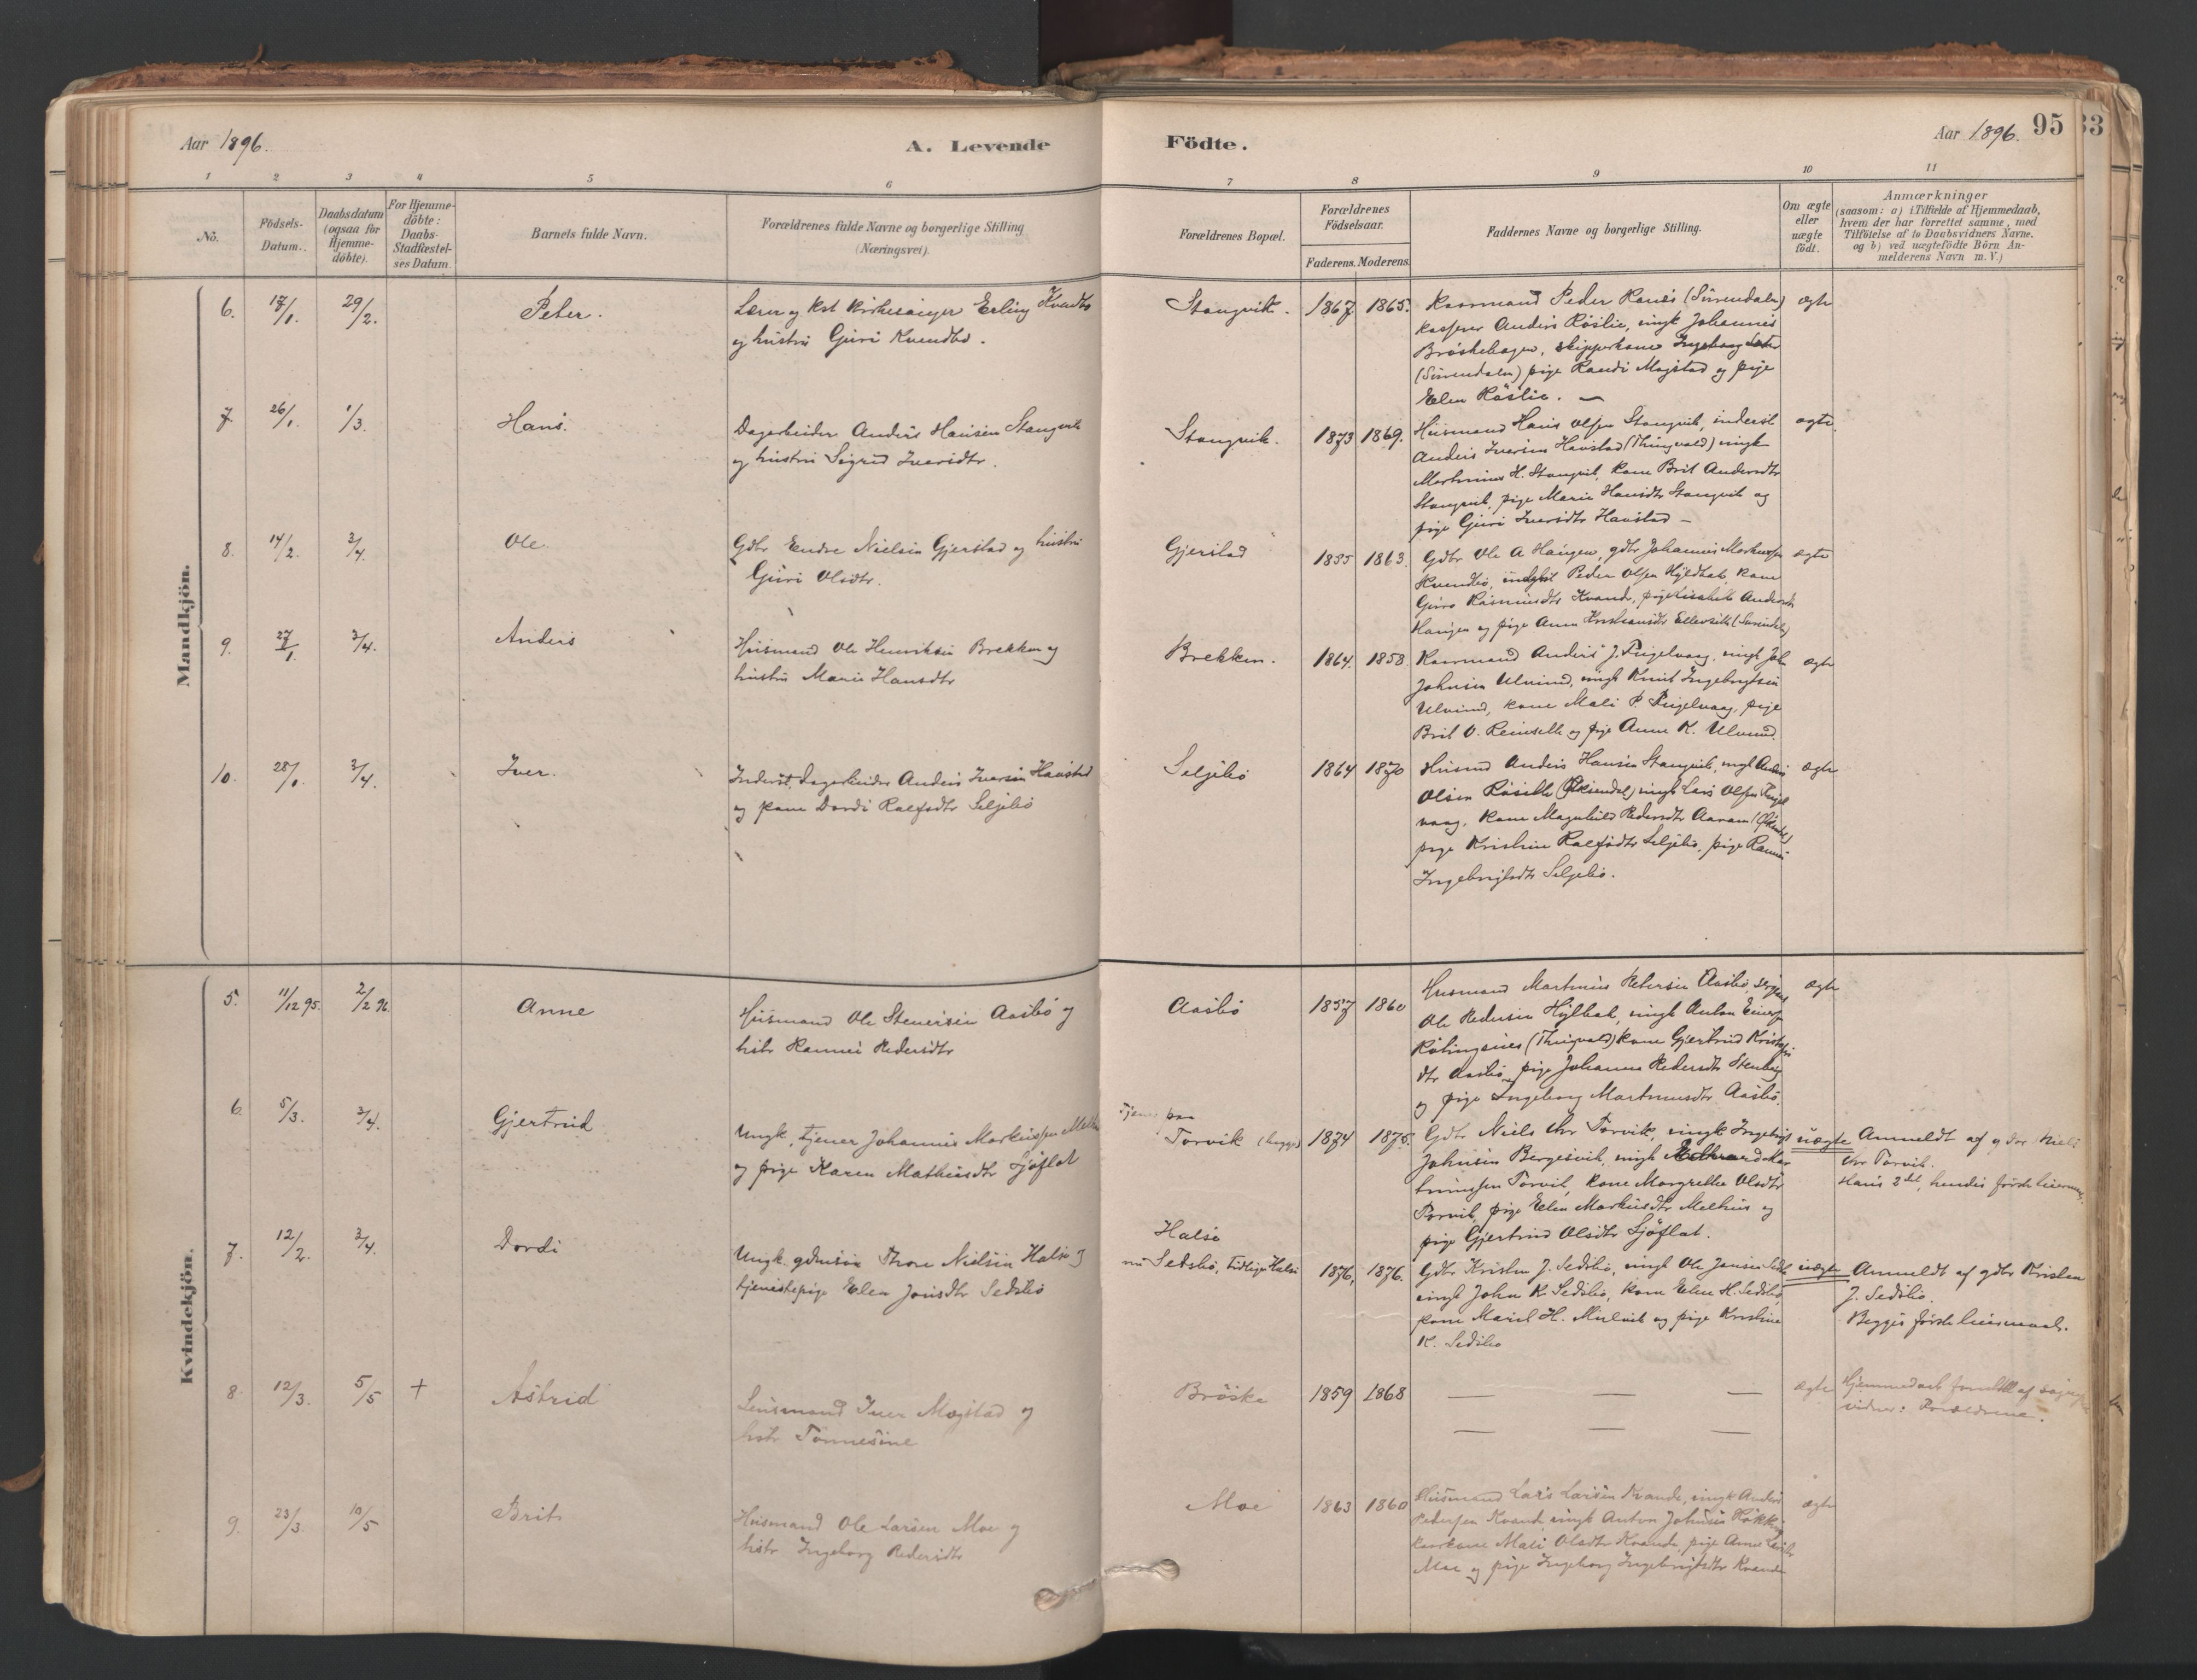 Aar 1896.
A. Levende
Födte.
Aar 1896.
95
33
1 2 3 4 5 6 7 8 9 10 11
No.
Födsels-
Datum.
Daabsdatum
(ogsaa for
Hjemme-
döbte).
For Hjemme-
döbte:
Daabs-
Stadfæstel-
ses Datum.
Barnets fulde Navn.
Forældrenes fulde Navne og borgerlige Stilling
(Næringsvei).
Forældrenes Bopæl.
Forældrenes
Födselsaar.
Faderens. Moderens.
Faddernes Navne og borgerlige Stilling.
Om ægte
eller
uægte
födt.
Anmærkninger
(saasom: a) i Tilfælde af Hjemmedaab,
hvem der har forrettet samme, med
Tilföielse af to Daabsvidners Navne.
og b) ved uægtefödte Börn An-
melderens Navn m. V.)
Mandkjön.
6. 17/1. 29/2. Peter.
Lærer og Kirkesanger Erling Kvendbo
og hustru Guri Kvendbo.
Stangvik. 1867 1865.
Kaarmand Peder Ranes (Surendalen) ægte
Anders Röslie, ungk Johannes
Bröskehagen, skipperkone Ingeborg
(Surendalen) pige Randi Mogstad og pige
Elen Röslie. —
7. 26/1. 1/3. Hans.
Dagarbeider Anders Hansen Stangvik
og hustru Sigrid Iversdtr.
Stangvik. 1873 1869.
Husmand Hans Olsen Stangvik, inderst ægte
Anders Iversen Havstad (Thingvold) ungk
Martinus H. Stangvik, kone Brit Andersdtr
Stangvik, pige Marie Hansdtr Stangvik og
pige Guri Iversdtr Havstad —
8. 14/2. 3/4. Ole.
Gdbr Endre Nielsen Gjerstad og hustru
Guri Olsdtr.
Gjerstad 1855 1863.
Gdbr Ole A Haugen, gdbr Johannes Markussen ægte
Kvendbo, Peder Olsen Hyldbak, kone
Guro Rasmusdtr Kvande, pige Andersdtr
Haugen og pige Anne Kristiansdtr (Surendal)
9. 27/1. 3/4. Anders
Husmand Ole Henriksen Brekken og
hustru Marie Hansdtr
Brekken. 1864. 1858.
Kaarmand Anders J. Fuglevaag, ungk John ægte
Johnsen Ulvund, ungk Knut Ingebrigtsen
Ulvund, kone Mali P Fuglevaag, pige
Brit O. Reinseth og pige Anne K. Ulvund.
10. 28/1. 3/4. Iver.
Inderst, Dagarbeider Anders Iversen Havstad
og kone Dordi Rolfsdtr Seljebö
Seljebö 1864 1870
Husmd Anders Hansen Stangvik, ungk Anders ægte
Olsen (Öksendal) ungk Lars Olsen Fugle
vaag, kone Magnhild Pedersdtr (Öksendal)
pige Kristine Rolfsdtr Seljebö, pige
Ingebrigtsdtr Seljebö.
Kvindekjön.
5. 11/12 95. 2/2 96. Anne
Husmand Ole Stenersen Aasbö og
hstr Rannei Pedersdtr
Aasbö 1857 1860
Husmand Martinus Petersen Aasbö, ægte
Ole Pedersen Hylbak, ungk Anton
(Thingvold) kone Gjertrud
dtr Aasbö, pige Johanna Pedersdtr
og pige Ingeborg Martinusdtr Aasbö.
6. 5/3. 3/4. Gjertrud
Ungk, tjener Johannes Markussen
og pige Karen Mathiasdtr Sjöflot
Tjener paa
Torvik (begge) 1874 1875.
Gdbr Niels Chr Torvik, ungk Ingebrigt uægte
Johnsen Bergesvik, ungk
Torvik, kone Margrethe Olsdtr
Torvik, pige Elen Markusdtr Melhus og
pige Gjertrud Olsdtr Sjöflot.
Anmeldt af gdbr Niels
Chr Torvik.
Hans 2det, hendes förste leiermaal.
7. 12/2. 3/4. Dordi
Ungk. Thore Nielsen Halse og
tjenestepige Elen Jonsdtr Sedsbö
Halse
nu Sedsbö, tidligere Halse 1876. 1876.
Gdbr Kristen J. Sedsbö, ungk Ole Jonsen uægte
ungk John K. Sedsbö, kone Elen H. Sedsbö,
kone Marit H. Mulvik og pige Kristine
K. Sedsbö
Anmeldt af gdbr Kristen
J. Sedsbö.
Begges förste leiermaal.
8. 12/3. 5/5 + Astrid
Lensmand Iver Mogstad og
hstr Tönnesine
Bröske 1859 1868
— — — ægte
— — —
Hjemmedöbt af
vidner: Forældrene.
9. 23/3. 10/5 Brit
Husmand Ole Larsen Moe og
hstr Ingeborg Pedersdtr
Moe 1863 1860
Husmand Lars Larsen Kvande, ungk Anders ægte
Pedersen Kvande, ungk Anton Johnsen
Mali Olsdtr Kvande, pige Anne
Moe og pige Ingeborg Ingebrigtsdtr Kvande